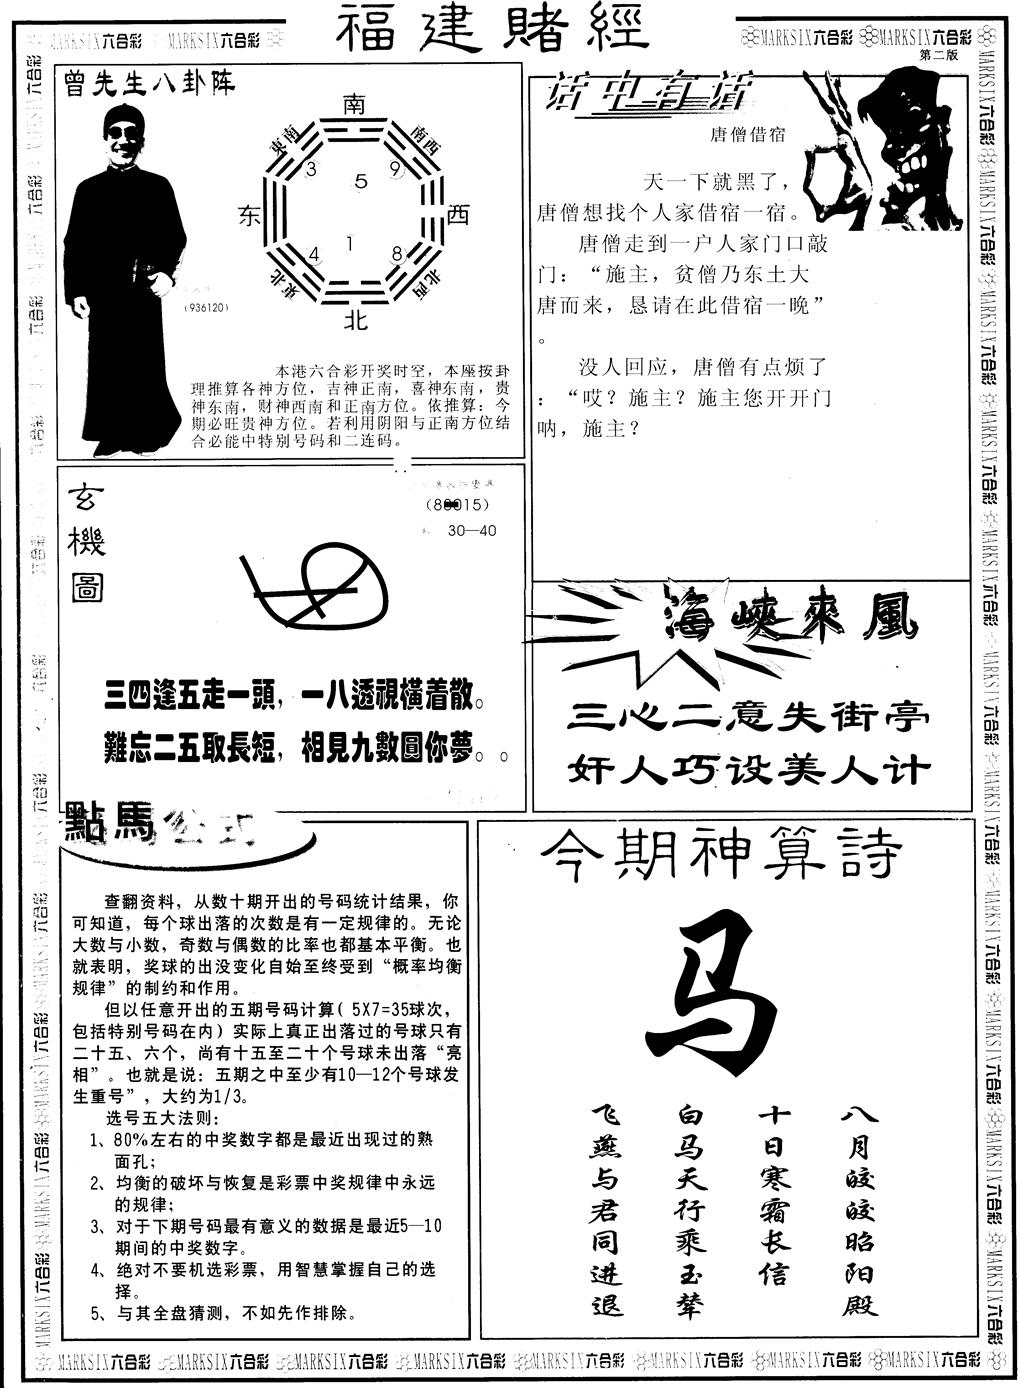 福建賭經
MARKSIX六合彩 MARKSIX六合彩
MARKSIX六合彩 MARKSIX六合彩
第二版
曾先生八卦阵
南
東南 南西
3 9
5
东 西
1
4 8
東北 北西
北
(936120)
本港六合彩开奖时空，本座按卦
理推算各神方位，吉神正南，喜神东南，贵
神东南，财神西南和正南方位。依推算：今
期必旺贵神方位。若利用阴阳与正南方位结
合必能中特别号码和二连码。
话中有话
唐僧借宿
天一下就黑了，
唐僧想找个人家借宿一宿。
唐僧走到一户人家门口敲
门：“施主，贫僧乃东土大
唐而来，恳请在此借宿一晚”
。
没人回应，唐僧有点烦了
：“哎？施主？施主您开开门
呐，施主？
玄機圖
30—40
三四逢五走一頭，一八透視橫着散。
難忘二五取長短，相見九數圓你夢。。
海峽來風
三心二意失街亭
奸人巧设美人计
點馬公式
查翻资料，从数十期开出的号码统计结果，你
可知道，每个球出落的次数是有一定规律的。无论
大数与小数，奇数与偶数的比率也都基本平衡。也
就表明，奖球的出没变化自始至终受到“概率均衡
规律”的制约和作用。
但以任意开出的五期号码计算( 5X7=35球次，
包括特别号码在内）实际上真正出落过的号球只有
二十五、六个，尚有十五至二十个号球未出落“亮
相”。也就是说：五期之中至少有10—12个号球发
生重号”，大约为1/3。
选号五大法则：
1、80%左右的中奖数字都是最近出现过的熟
面孔；
2、均衡的破坏与恢复是彩票中奖规律中永远
的规律；
3、对于下期号码最有意义的数据是最近5—10
期间的中奖数字。
4、绝对不要机选彩票，用智慧掌握自己的选
择。
5、与其全盘猜测，不如先作排除。
今期神算詩
马
八月皎皎昭阳殿
十日寒霜长信
白马天行乘玉辇
飞燕与君同进退
MARKSIX六合彩 MARKSIX六合彩 MARKSIX六合彩 MARKSIX六合彩 MARKSIX六合彩 MARKSIX六合彩 MARKSIX六合彩 MARKSIX六合彩